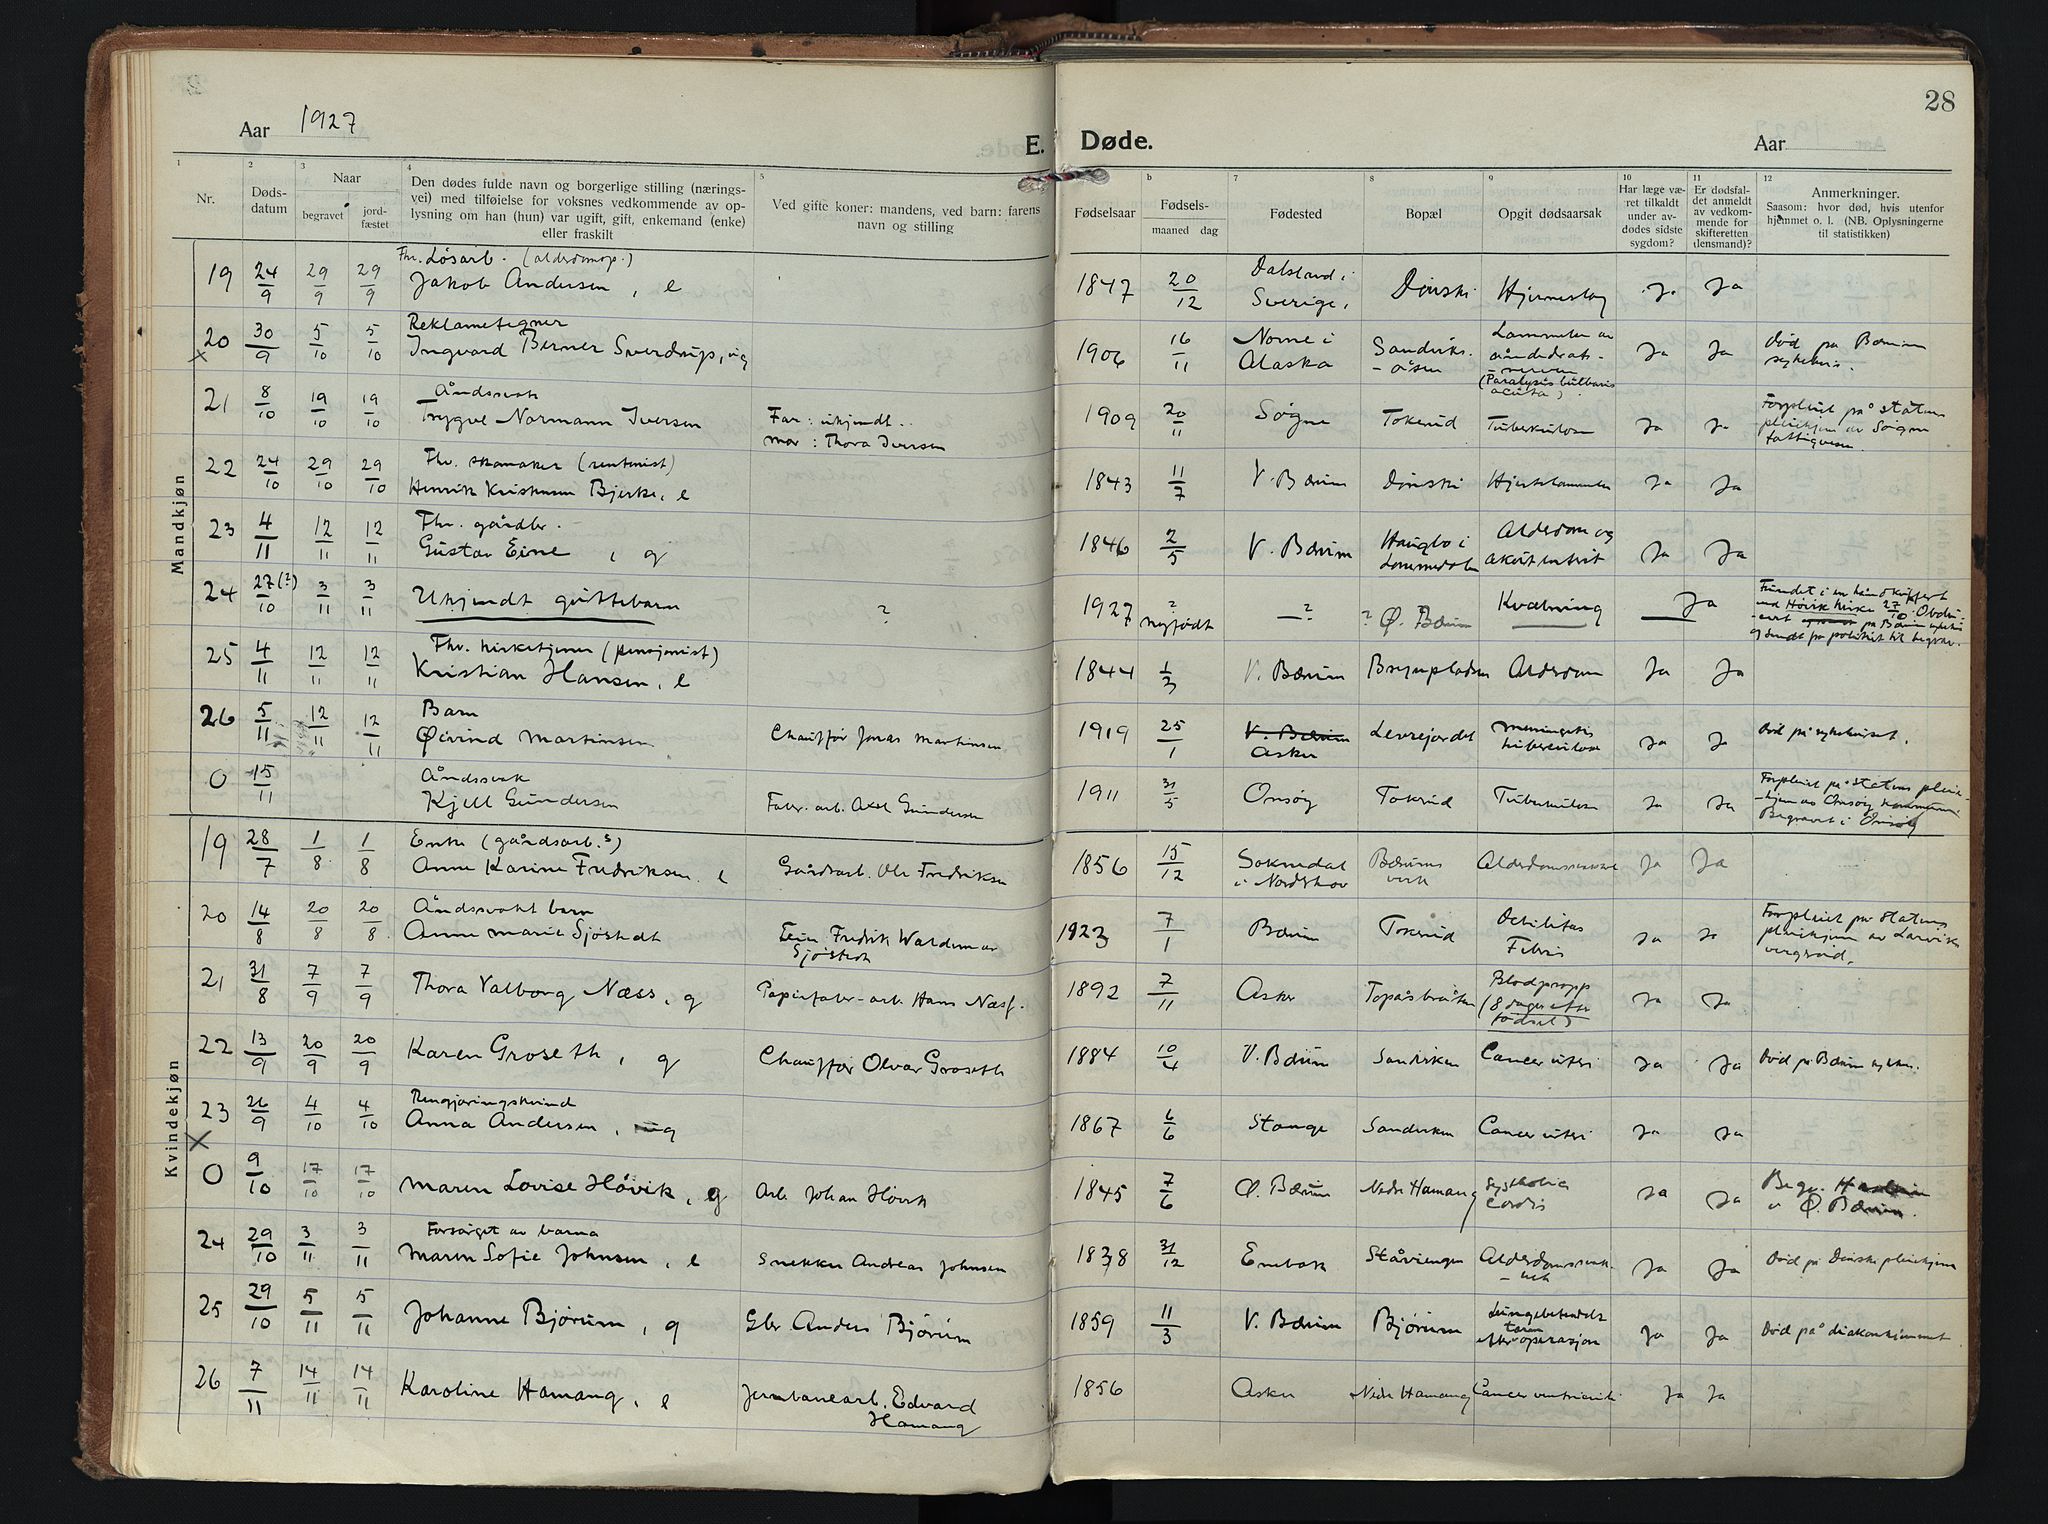 28
Aar 1927
E. Døde.
Aar
1 2 3 4 5 b 7 8 9 10 11 12
Nr.
Døds-
datum
Naar
begravet
jord-
fæstet
Den dødes fulde navn og borgerlige stilling (nærings-
vei) med tilføielse for voksnes vedkommende av op-
lysning om han (hun) var ugift, gift, enkemand (enke)
eller fraskilt
Ved gifte koner: mandens, ved barn: farens
navn og stilling
Fødselsaar
Fødsels-
maaned dag
Fødested
Bopæl
Opgit dødsaarsak
Har læge væ-
ret tilkaldt
under av-
dødes sidste
sygdom?
Er dødsfal-
det anmeldt
av vedkom-
mende for
skifteretten
(lensmand)?
Anmerkninger.
Saasom: hvor død, hvis utenfor
hjemmet o. l. (NB. Oplysningerne
til statistikken)
Mandkjøn
Fhv. Løsarb. (alderdomsp.)
19 24/9 29/9 29/9 Jakob Andersen, e 1847 20/12 Dalsland i
Sverige, Dønski Hjerneslag Ja Ja
Reklametegner
20 30/9 5/10 5/10 Ingvard Berner Sverdrup, ug 1906 16/11 Nome i
Alaska Sandviks-
-åsen Lammelse av
åndedræts-
-nerven
(Paralysis bulbaris
acuta). Ja Ja Død på Bærum
sykehus.
Åndssvak
21 8/10 19/10 19/10 Trygve Normann Iversen Far: ukjendt..
mor: Thora Iversen 1909 20/11 Søgne Tokerud Tuberkulose Ja Ja Forpleiet på statens
pleiehjem av Søgne
fattigvesen
Fhv. skomaker (rentenist)
22 24/10 29/10 29/10 Henrik Kristensen Bjerke, e 1843 11/7 V. Bærum Dønski Hjertelammelse Ja Ja
Fhv. gårdbr.
23 4/11 12/11 12/11 Gustav Eine, g 1846 2/5 V. Bærum Haugbo i
Lommedalen Alderdom og
akut enterit Ja Ja
24 27(?)/10 3/11 3/11 Ukjendt guttebarn ? 1927 ?
nyfødt —? ? Ø. Bærum Kvælning — Ja Fundet i en håndkuffert
ved Høvik kirke 27/10. Obdu-
-cert på Bærum sykehus
og sendt fra politiet til begrav.
Fhv. kirketjener (pensjonist)
25 4/11 12/11 12/11 Kristian Hansen, e 1844 1/3 V. Bærum Brynpladsen Alderdom Ja Ja
Barn
26 5/11 12/11 12/11 Øivind Martinsen Chauffør Jonas Martinsen 1919 25/1 V. Bærum
Asker Levrejordet Meningitis
tuberkulose Ja Ja Død på sykehuset.
Åndssvak
0 15/11 Kjell Gundersen Fabr. arb. Axel Gundersen 1911 31/5 Onsøy Tokerud Tuberkulose Ja Ja Forpleiet på statens pleie-
-hjem av Onsøy kommune
Begravet i Onsøy
Kvindekjøn
Enke (gårdsarb.s)
19 28/7 1/8 1/8 Anne Karine Fredriksen. e Gårdsarb. Ole Fredriksen 1856 15/12 Soknedal
i Nordskov Bærums
verk Alderdomssvakhet Ja Ja
Åndssvakt barn
20 14/8 20/8 20/8 Anne Marie Sjøstedt Fredrik Waldemar
Sjøstedt 1923 7/1 Bærum Tokerud Debilitas
Febris Ja Ja Forpleiet på statens
pleiehjem av Larvik
vergeråd.
21 31/8 7/9 7/9 Thora Valborg Næss, g Papirfabr-arb. Hans Næss. 1892 7/11 Asker Topåsbråten Blodpropp
(8 dager efter
fødsel) Ja Ja
22 13/9 20/9 20/9 Karen Groseth, g Chauffør Olvar Groseth 1884 10/4 V. Bærum Sandviken Cancer uteri Ja Ja Død på Bærum sykehus.
Rengjøringskvinde
23 26/9 4/10 4/10 Anna Andersen, g 1867 6/6 Stange Sandviken Cancer uteri Ja Ja
0 9/10 17/10 17/10 Maren Lovise Høvik, g Arb. Johan Høvik 1845 7/6 Ø. Bærum Nedre Hamang Cordis Ja Ja Begr.
i Ø. Bærum.
Forsørget av barna
24 29/10 3/11 3/11 Maren Sofie Johnsen, e Snekker Andreas Johnsen 1838 31/12 Enebak Ståviengen Alderdomssvak-
-het Ja Ja Død på Dønski pleiehjem
25 29/10 5/11 5/11 Johanne Bjørum, g Gbr Anders Bjørum 1859 11/3 V. Bærum Bjørum Lungebetændelse
efter operasjon Ja Ja Død på diakonhjemmet
26 7/11 14/11 14/11 Karoline Hamang, e Jernbanearb. Edvard
Hamang 1856 Asker Nedre Hamang Cancer ventriculi Ja Ja